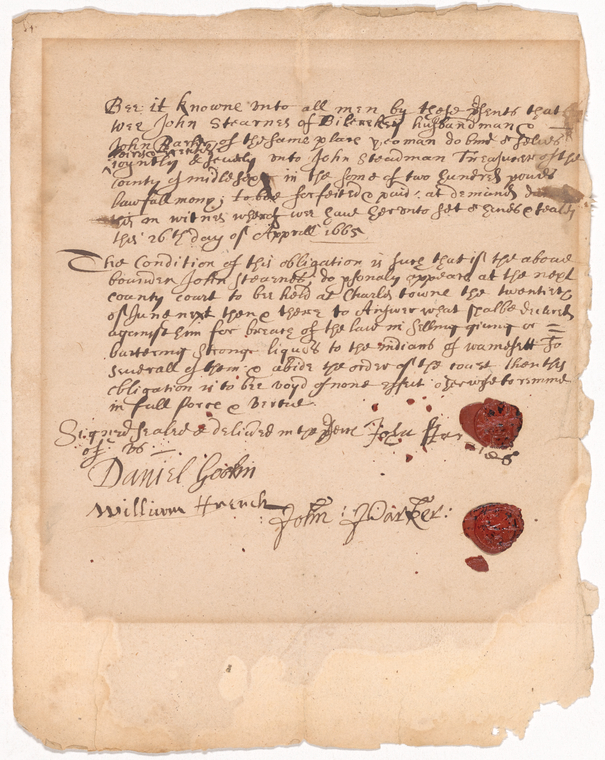 Bee it knowne vnto all men by these psents that
wee John Stearnes of Bilerekey husbandman &
John Parker of the same place yeoman do bind or selves
joyntly & seuerly vnto John Steadman Treasurer of the
county of midlesex in the some of two hundred pounds
lawfull mony; to bee forfeited & paid at demand
this on witnes wherof wee haue hervnto set or hands & seales
this 26th day of Aprill 1665
The Condition of this obligation is such that if the aboue
bounden John Stearnes do psonaly appeare at the next
county court to bee held at Charles towne the twentieth
of June next then & there to Answer what shalbe
against him for breach of the law in selling giuing or =
bartering stronge liquors to the indians of wamesett To
seuerall of them & abide the order of the court then this
obligation is to bee voyd of none effect oherwise to remine
in full force & vertue
Signed sealed & deliuered in the psenc John
of vs
Daniel Gookin
William French
John Parker: